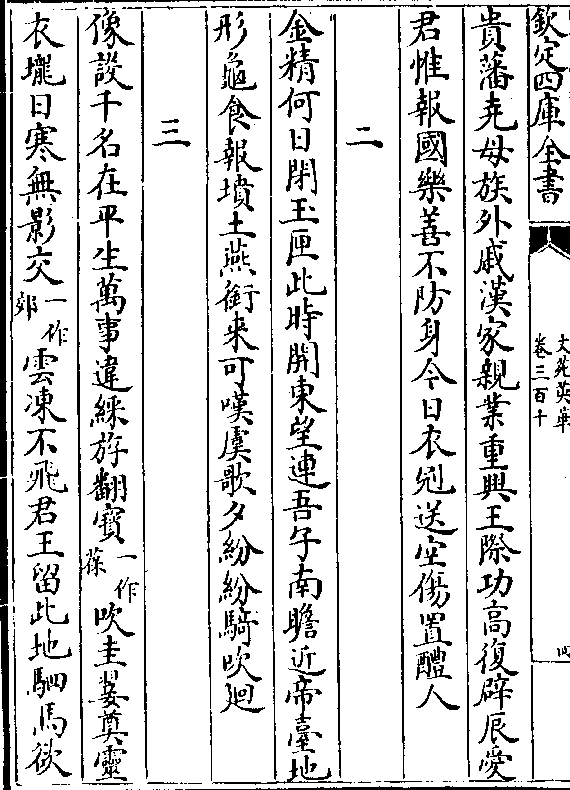 欽定四庫全書
文苑英華
卷三百十
貴藩堯母族外戚漢家親業重興王際功高復辟辰愛
君惟報國樂善不防身今日衣冠送空傷置醴人
二
金精何日閉玉匣此時開東望連吾子南瞻近帝臺地
形龜食報墳土燕銜来可嘆虞歌夕紛紛騎吹廻
三
像設千名在平生萬事違綵斿翻寶一作葆吹圭翣奠靈
衣壠日寒無影交一作郊雲凍不飛君王留此地駟馬欲